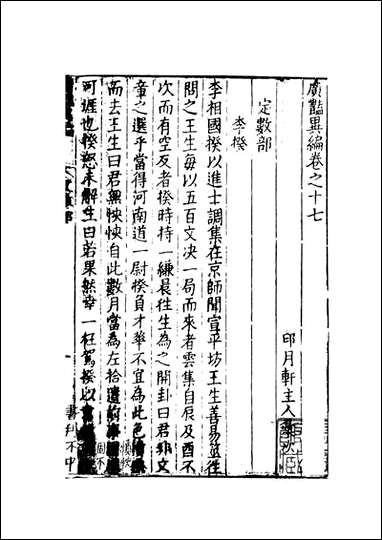 廣豔異編卷之十七
印月軒主人彙次
定數部
李揆
李相國揆以進士調集在京師聞宣平坊王生善易筮往
問之王生每以五百文决一局而來者雲集自辰及酉不
次而有空反者揆時持一縑晨往生為之開卦曰君非文
章之選乎當得河南道一尉揆負才華不宜為此色
而去王生曰君無怏怏自此數月當為左拾遺前
可涯也揆怒未解生曰若果然幸一枉駕揆以
書判不中